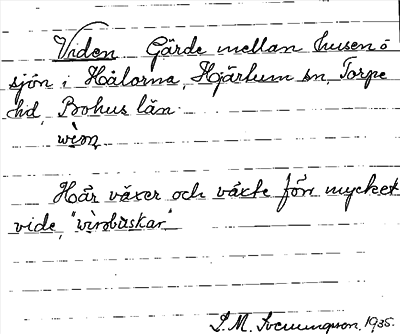 Viden Gärde mellan husen o
sjön i Hålorna, Hjärtum sn, Torpe
hd, Bohus län.
Här växer och växte förr mycket
vide,
S. M. Svenungsson, 1935.